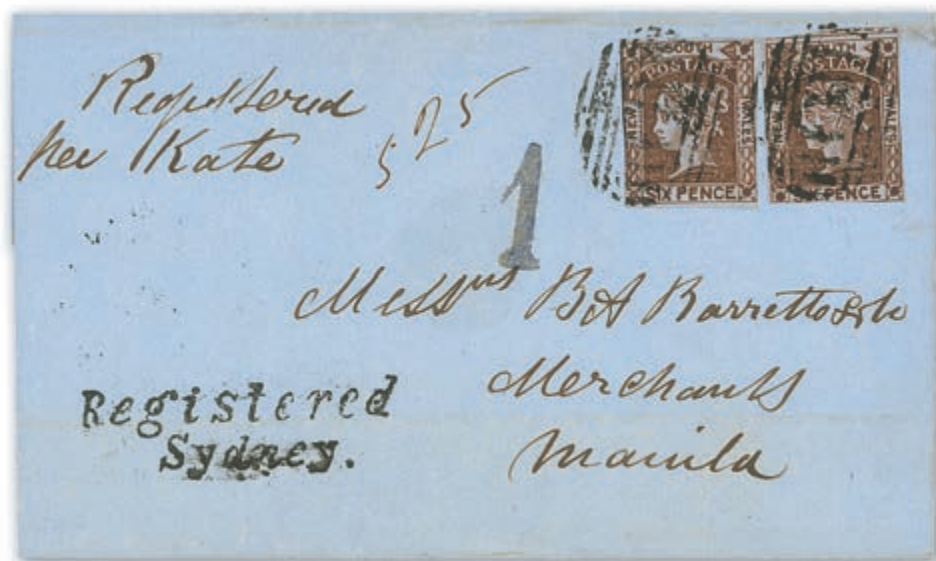 Registered
per Kate
525
1
SOUTH
POSTAGE
NEW
WALES
SIX PENCE
SOUTH
POSTAGE
NEW
WALES
SIX PENCE
Messrs BA Barretto & Co
Merchants
Manila
Registered
Sydney.